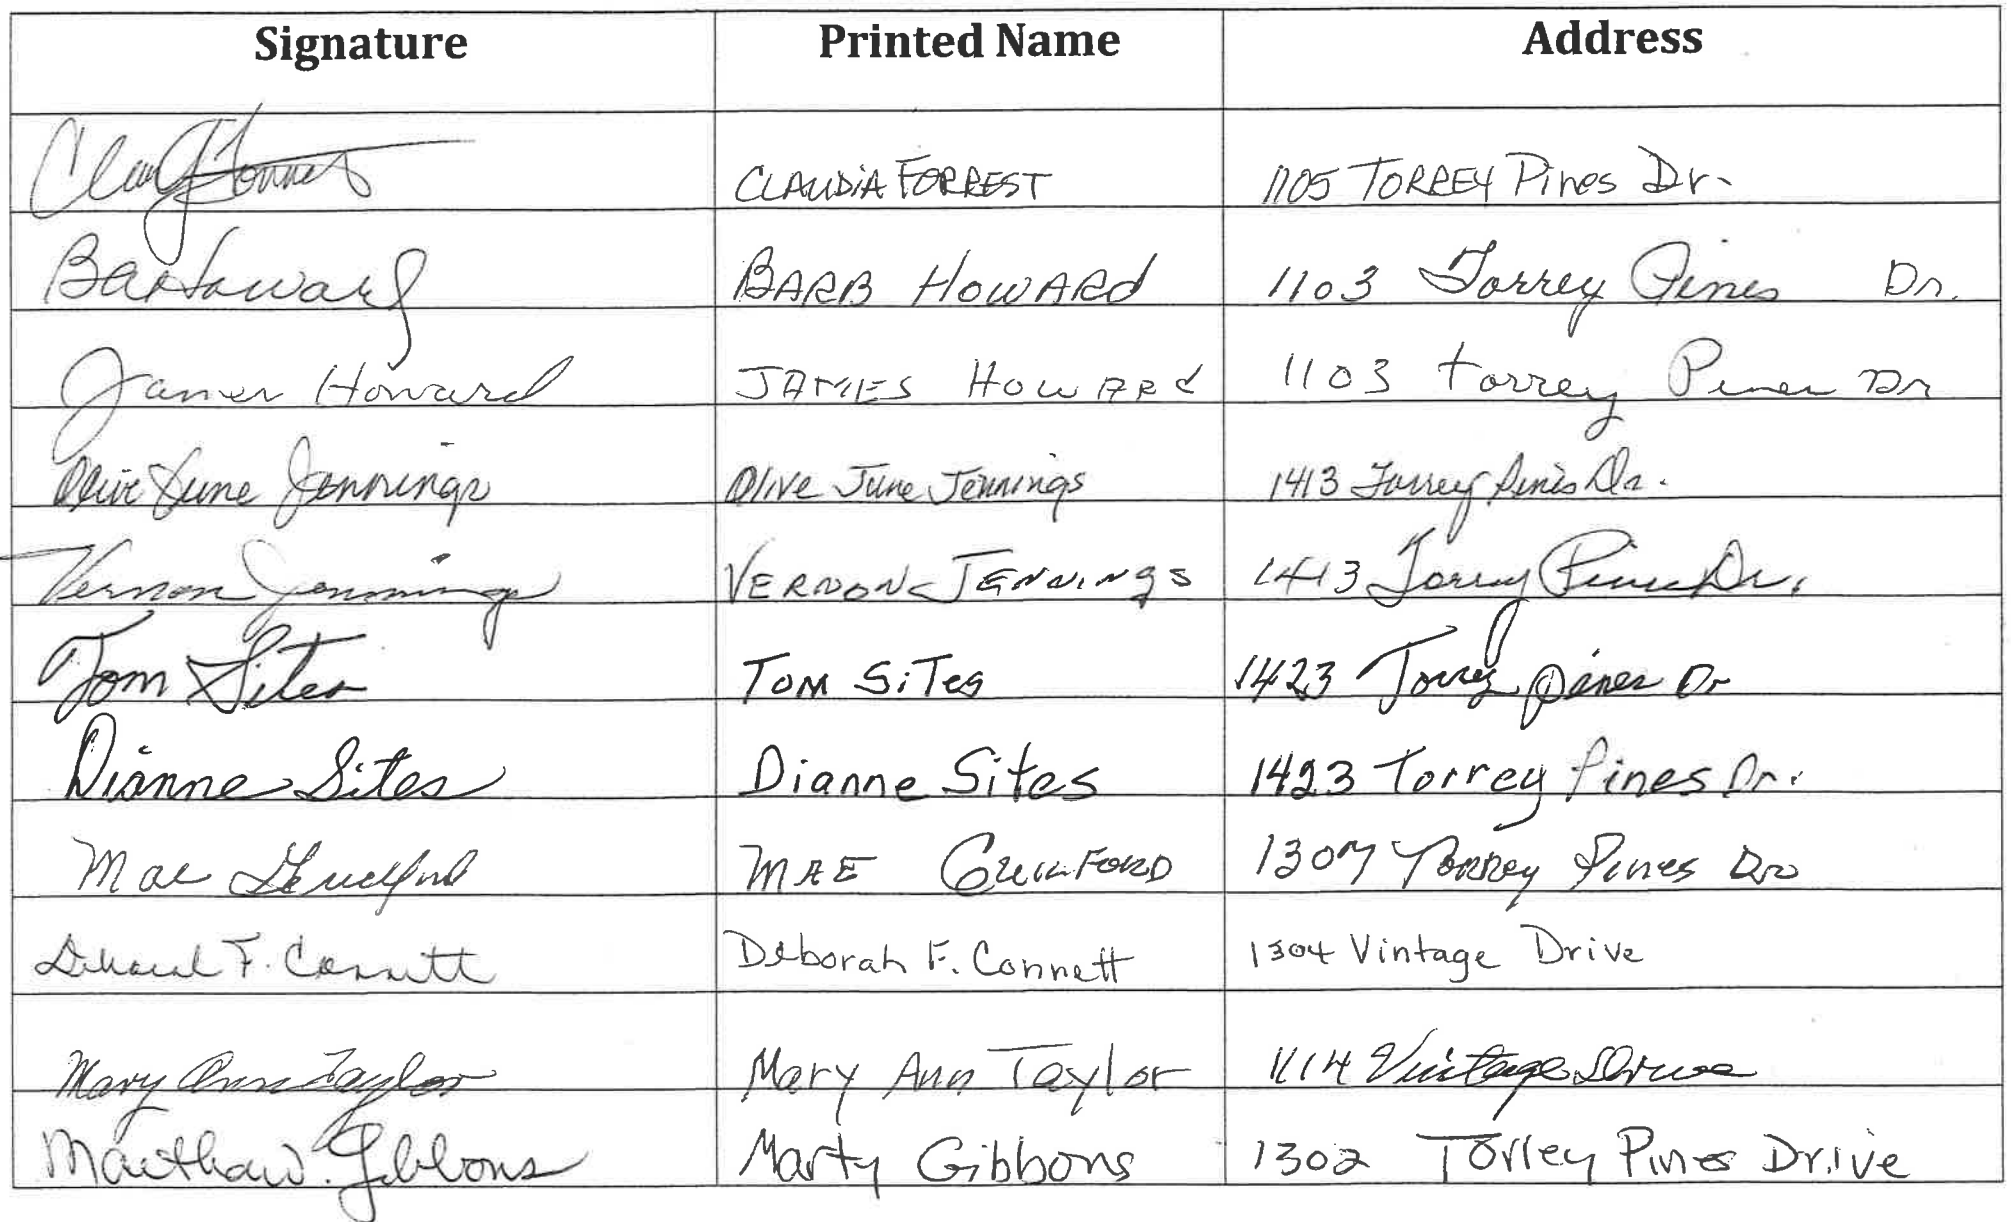 Signature Printed Name Address
Claudia Forrest CLAUDIA FORREST 1105 TORREY Pines Dr.
Barb Howard BARB HOWARD 1103 Torrey Pines Dr.
James Howard JAMES HOWARD 1103 torrey Pines Dr
Olive June Jennings Olive June Jennings 1413 Torrey Pines Dr.
Vernon Jennings VERNON JENNINGS 1413 Torrey Pines Dr.
Tom Sites Tom SiTes 1423 Torrey pines Dr
Dianne Sites Dianne Sites 1423 Torrey Pines Dr.
Mae Guilford MAE GUILFORD 1307 Torrey Pines Dr
Deborah F. Connett Deborah F. Connett 1304 Vintage Drive
Mary Ann Taylor Mary Ann Taylor 1114 Vintage Drive
Martha W. Gibbons Marty Gibbons 1302 Torrey Pines Drive